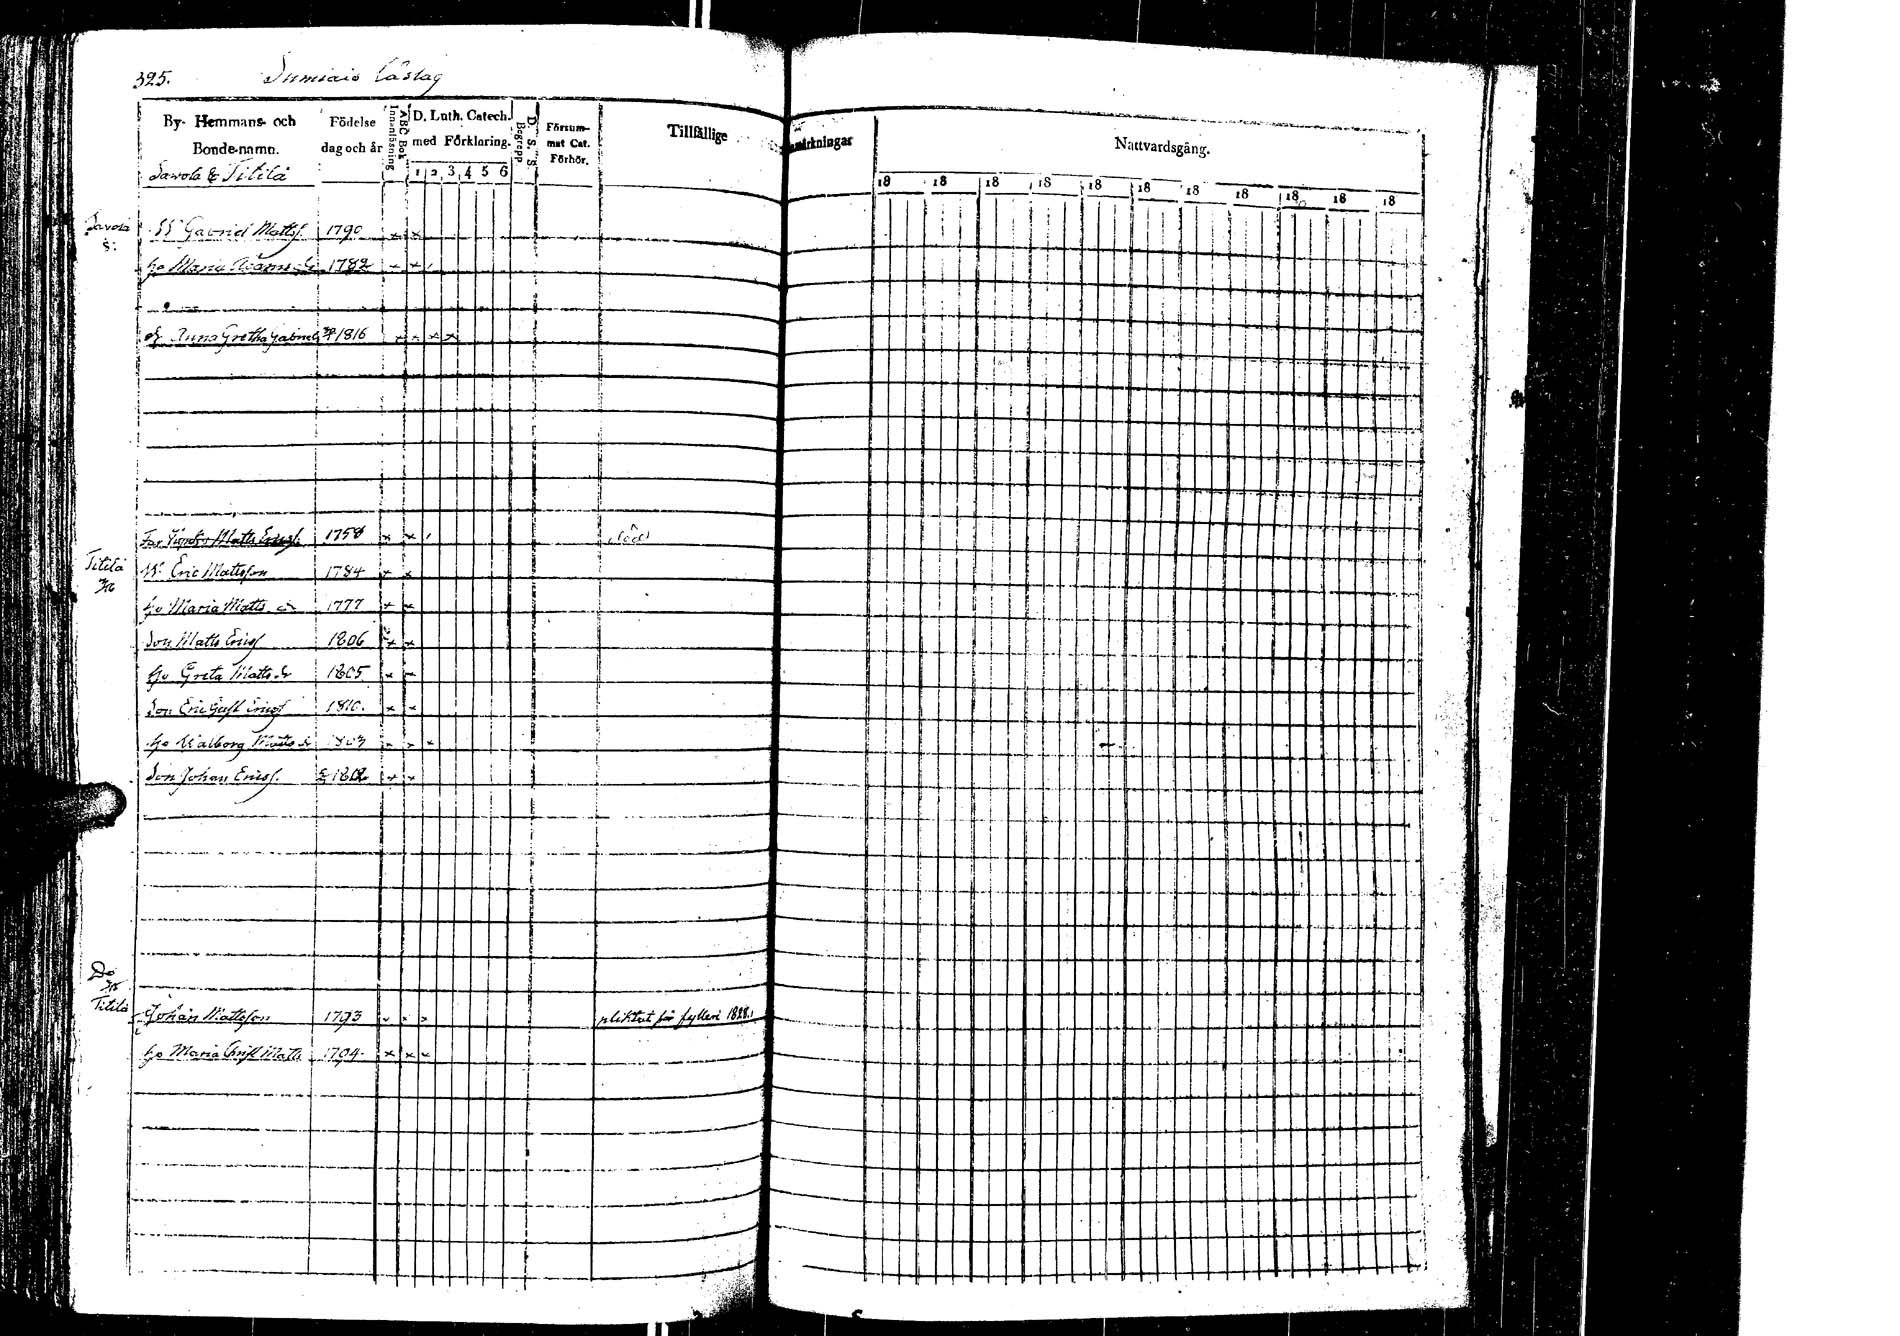 325. Sumiais Låslag
By- Hemmans- och Bonde-namn.
Födelse dag och år
Innanläsning
ABC Bok
D. Luth. Catech. med Förklaring.
1 2 3 4 5 6
D. S. S. Begrepp
Försummat Cat. Förhör.
Tillfällige Anmärkningar
Nattvardsgång.
18 18 18 18 18 18 18 18 18 18 18
Savola & Titilä
Savola
Gabriel Matts. 1790
ho Maria 1782
Anna Gretha Gabriels 1816
Far Matts Ericss. 1758 död
Titilä
Eric Mattsson 1784
ho Maria Matts d 1777
Son Matts Ericss 1806
ho Greta Matts dr 1805
Son Eric Gust Ericss 1810.
ho Walborg Matts dr 1803
Son Johan Ericss. 1812
Do
Titilä
Johan Mattsson 1793 pliktat för fylleri 1828.
ho Maria Christ Matts 1794